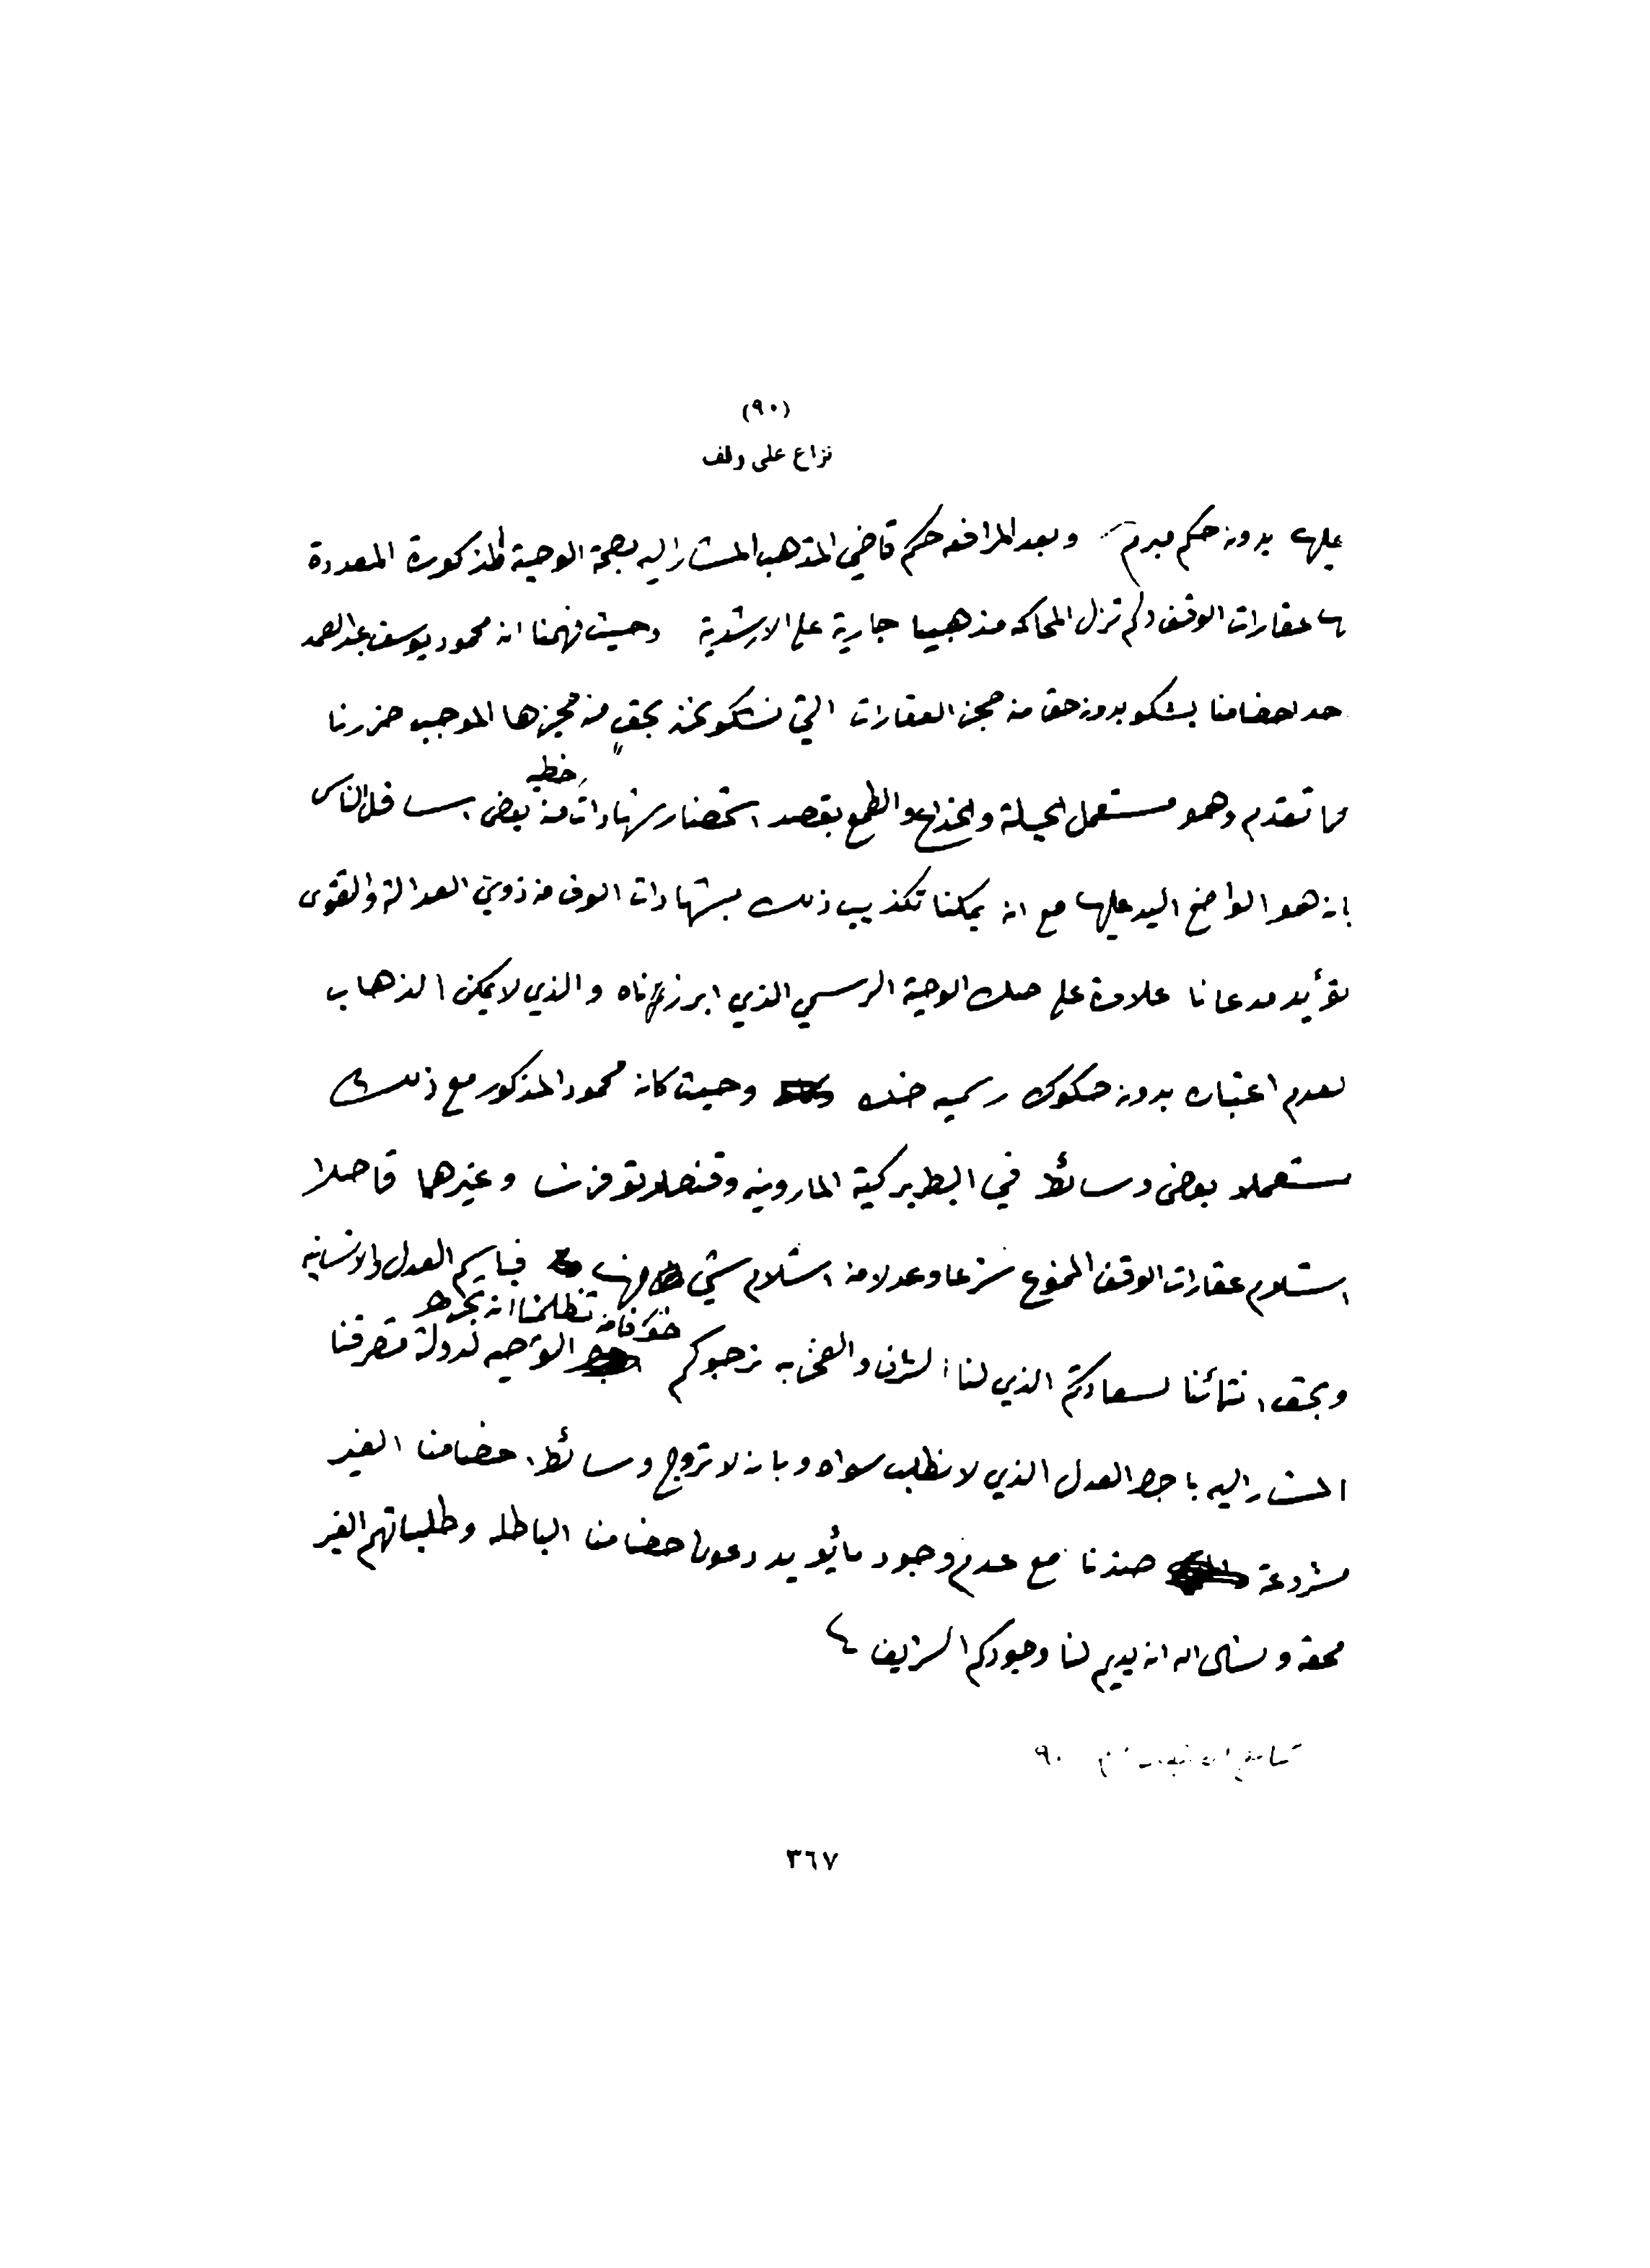 (٩٠)
نزاع على وقف
عليها بدون حكم مبرم وبعد المرافعه حكم قاضي المذهب المشار اليه بصحة الوصية المذكورة المعددة
بها عقارات الوقف ولم تزل المحاكمه مذهبيا جارية على الارشدية وحيث فهمنا ان محمود يوسف عبد الصمد
احد اخصامنا يشكو بدون حق من حجز العقارات التي نشكو نحن بحق من حجزها الموجب ضررنا
مما تقدم وهو مستعمل الحيلة والخداع والطمع بقصد استحضار شهادات خطيه من بعض اسافل الناس
بانه هو الواضع اليد عليها مع انه يمكنا تكذيب ذلك بشهادات الوف من ذوي العدالة والتقوى
تؤيد مدعانا علاوة على صك الوصية الرسمي الذي ابرزناه والذي لا يمكن الذهاب
لعدم اعتباره بدون صكوك رسميه ضده وحيث كان محمود المذكور مع ذلك
مستعملا بعض وسائط في البطريركية المارونيه وقنصلاتو فرنسا وغيرهما قاصدا
استلام عقارات الوقف الممنوع شرعا وعدلا من استلام شي منها فباسم العدل والانسانيه
وبحق انتمائنا لسعادتكم الذي لنا الشرف والفخر به نرجوكم التوجيه لدولة متصرفنا
المشار اليه باجراء العدل الذي لا نطلب سواه وبان لا تروج وسائط اخصامنا الغير
مشروعة ضدنا مع عدم وجود ما يؤيد دعوى اخصامنا الباطله وطلباتهم الغير
محقه ونسال الله ان يديم لنا وجودكم الشريف
٩٠
٣٦٧